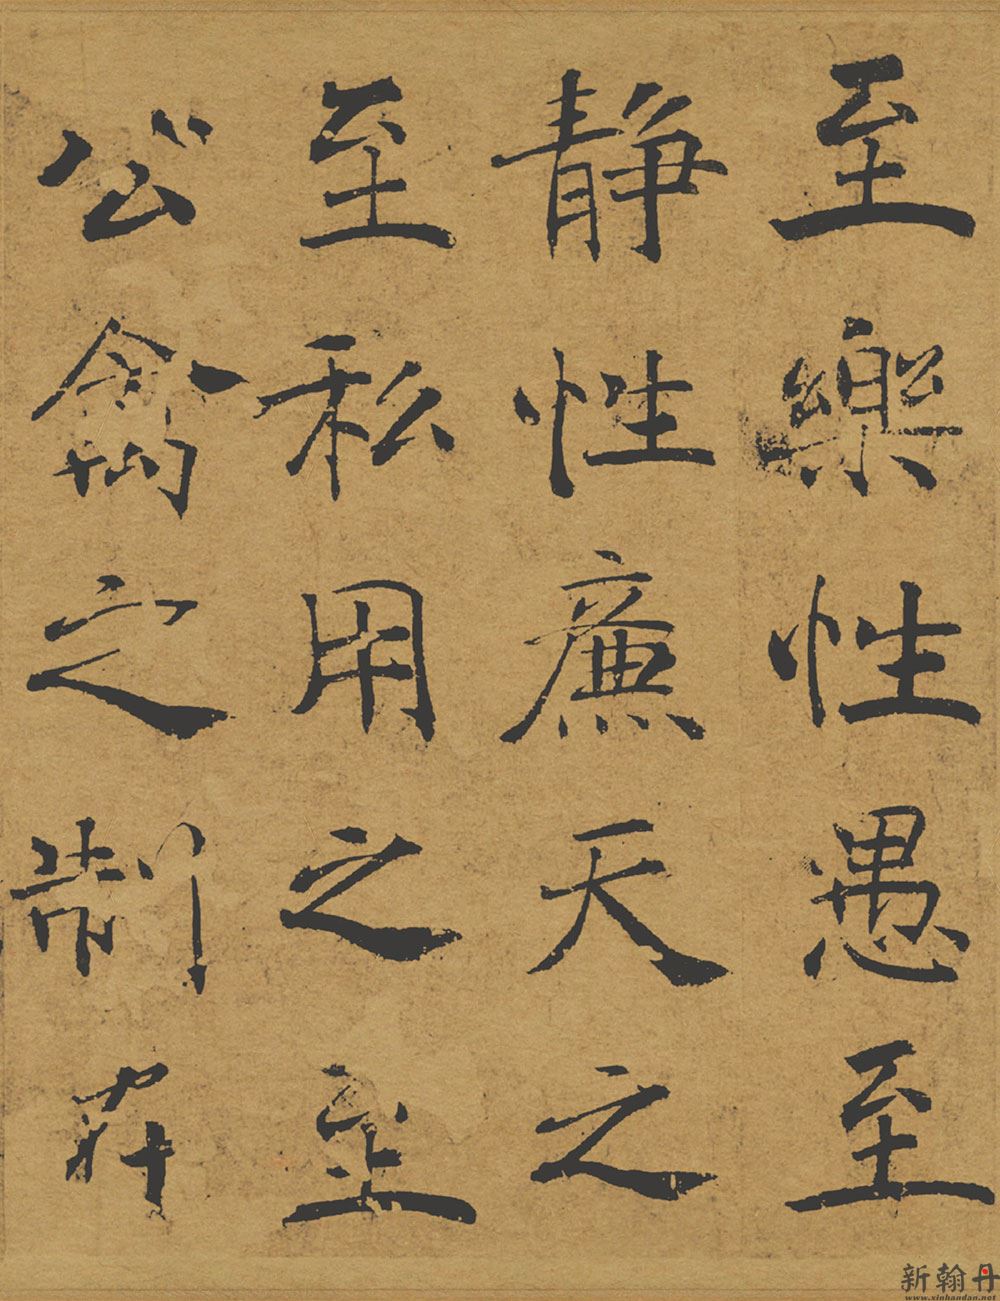 至樂性愚至
静性廉天之
至私用之至
公禽之制在
新翰丹
www.xinhandan.net